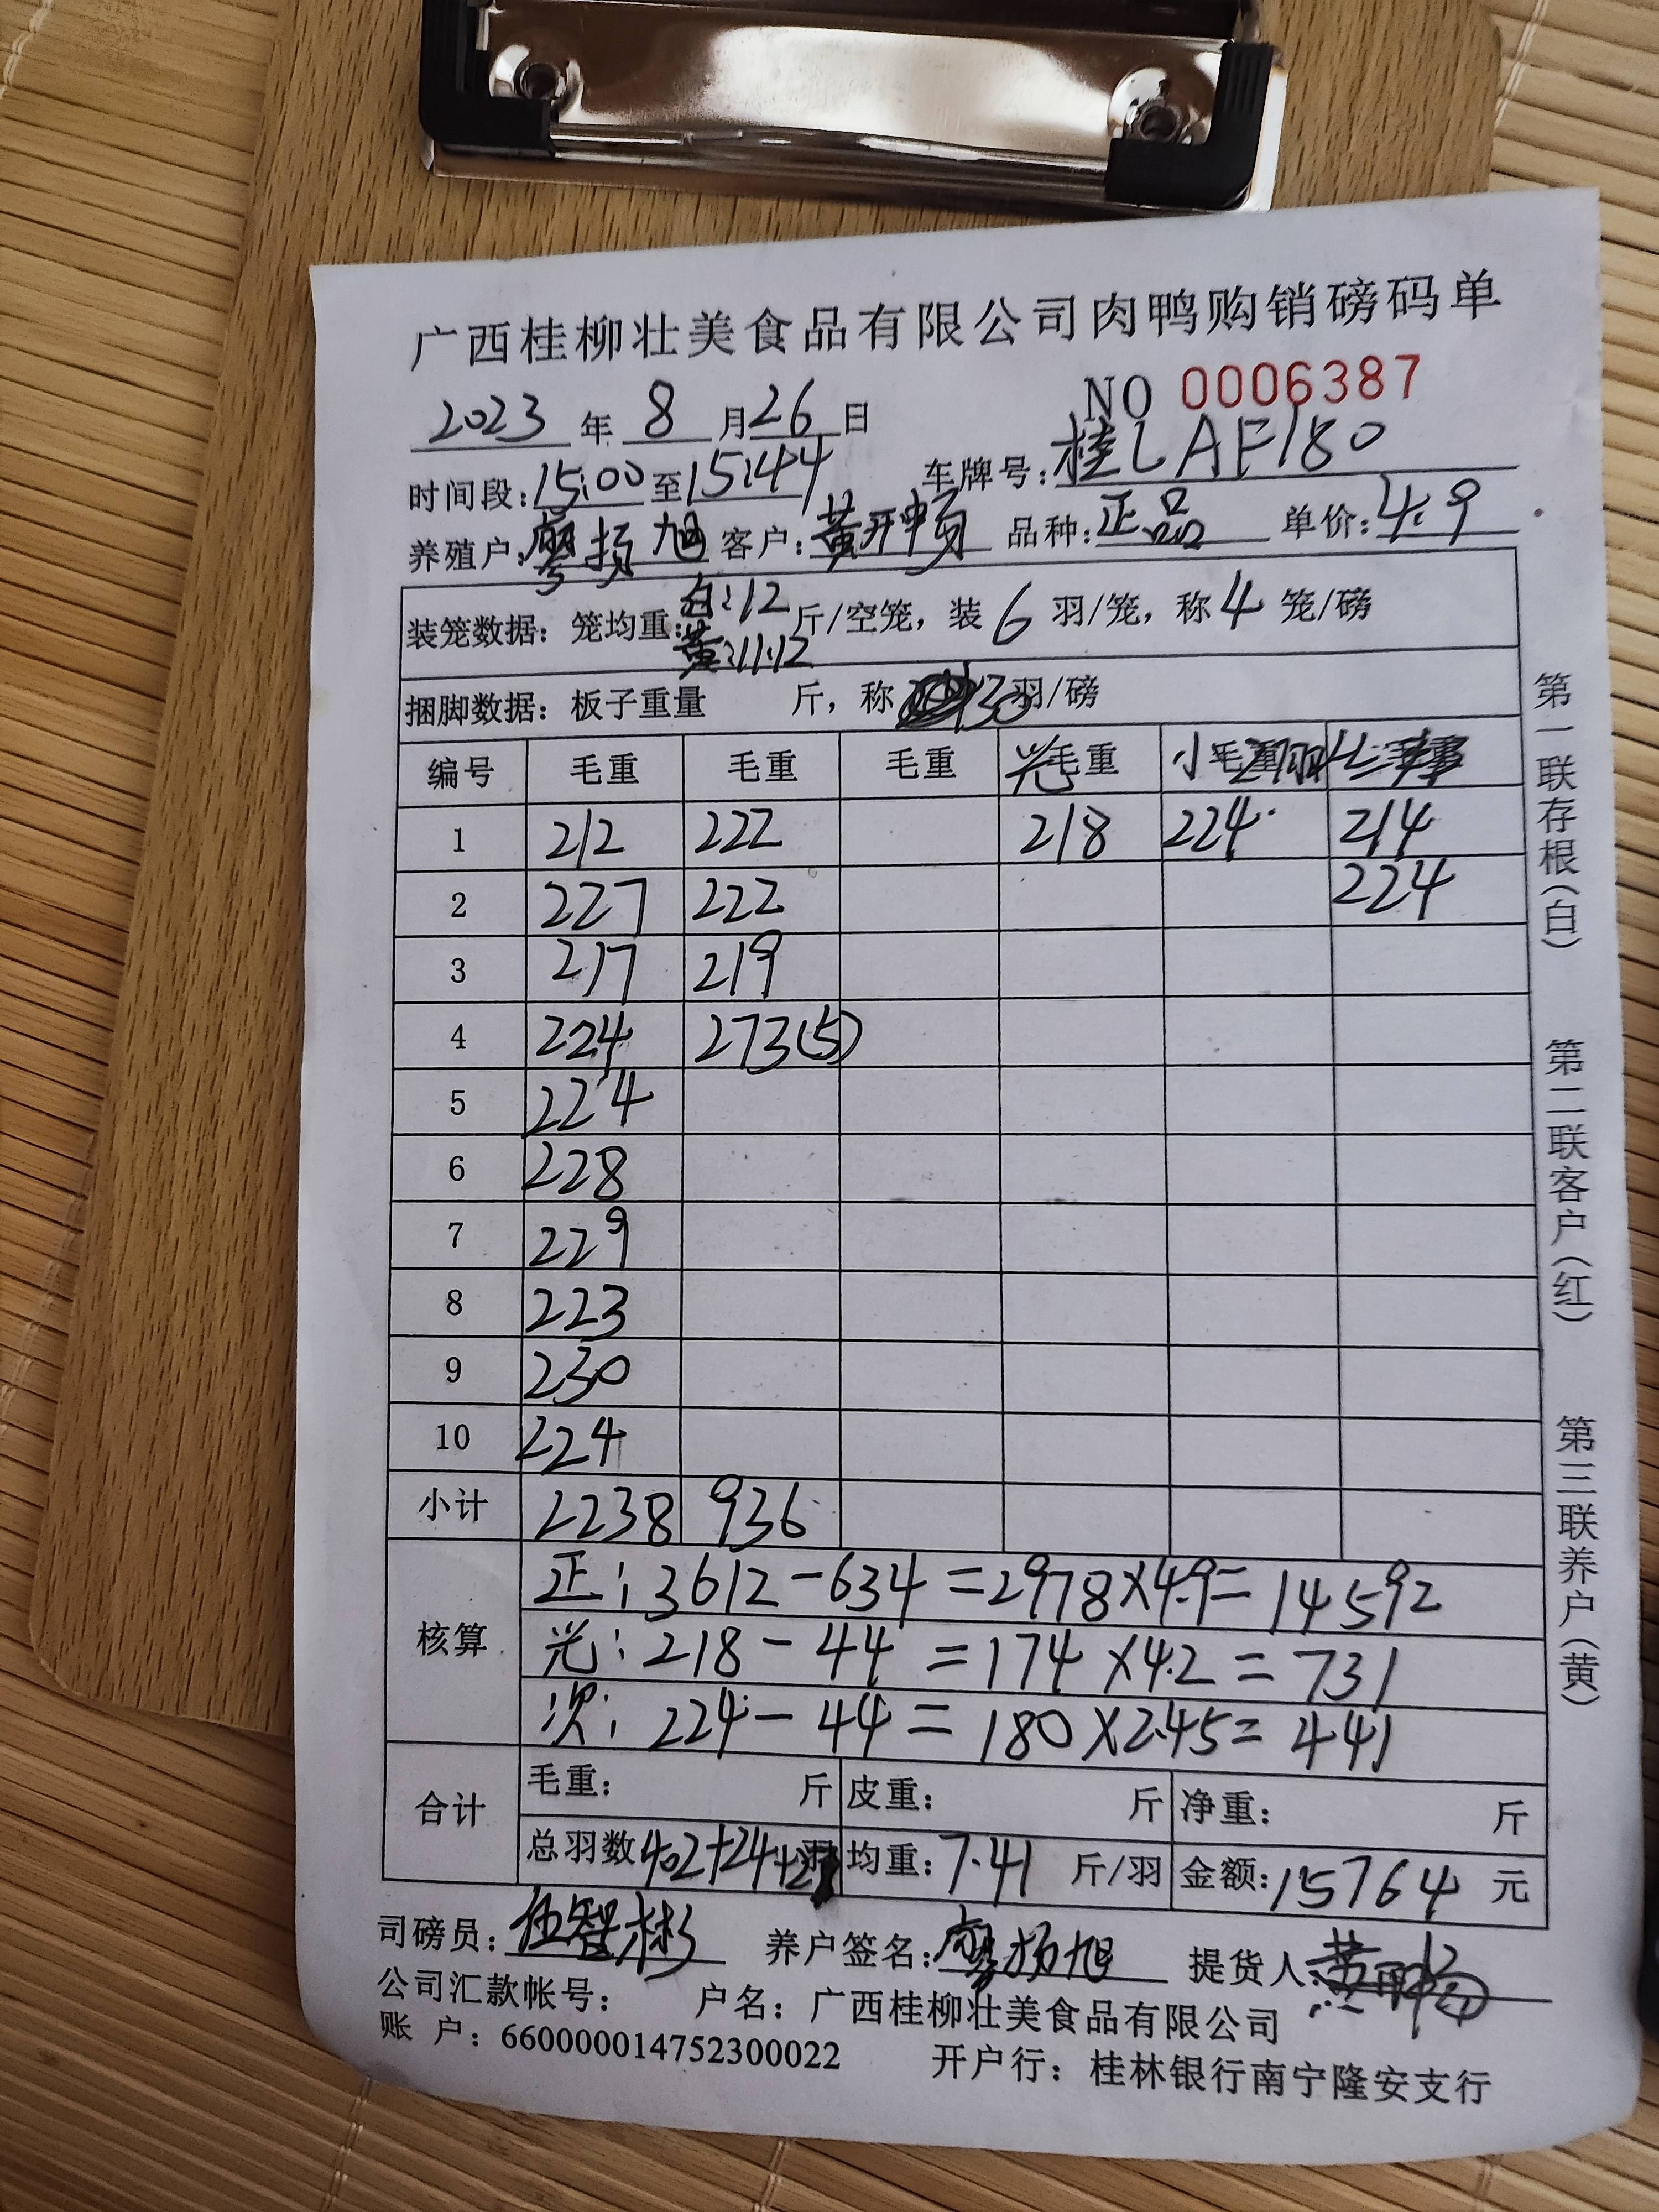 广西桂柳壮美食品有限公司肉鸭购销磅码单
NO 0006387
2023 年 8 月 26 日
时间段：15:00 至 15:44 车牌号：桂LAF180
养殖户：廖扬旭 客户：黄开畅 品种：正品 单价：4.9
装笼数据：笼均重：白:12 黄:11.12 斤/空笼，装 6 羽/笼，称 4 笼/磅
捆脚数据：板子重量 斤，称 30 羽/磅
编号 毛重 毛重 毛重 光毛重 小毛重
1 212 222 218 224 214
2 227 222 224
3 217 219
4 224 273(5)
5 224
6 228
7 229
8 223
9 230
10 224
小计 2238 936
核算
正：3612-634=2978×4.9=14592
光：218-44=174×4.2=731
次：224-44=180×2.45=441
合计 毛重： 斤 皮重： 斤 净重： 斤
总羽数 402+24+ 均重：7.41 斤/羽 金额：15764 元
司磅员：伍智彬 养户签名：廖扬旭 提货人：黄开畅
公司汇款帐号： 户名：广西桂柳壮美食品有限公司
账 户：660000014752300022 开户行：桂林银行南宁隆安支行
第一联存根（白） 第二联客户（红） 第三联养户（黄）